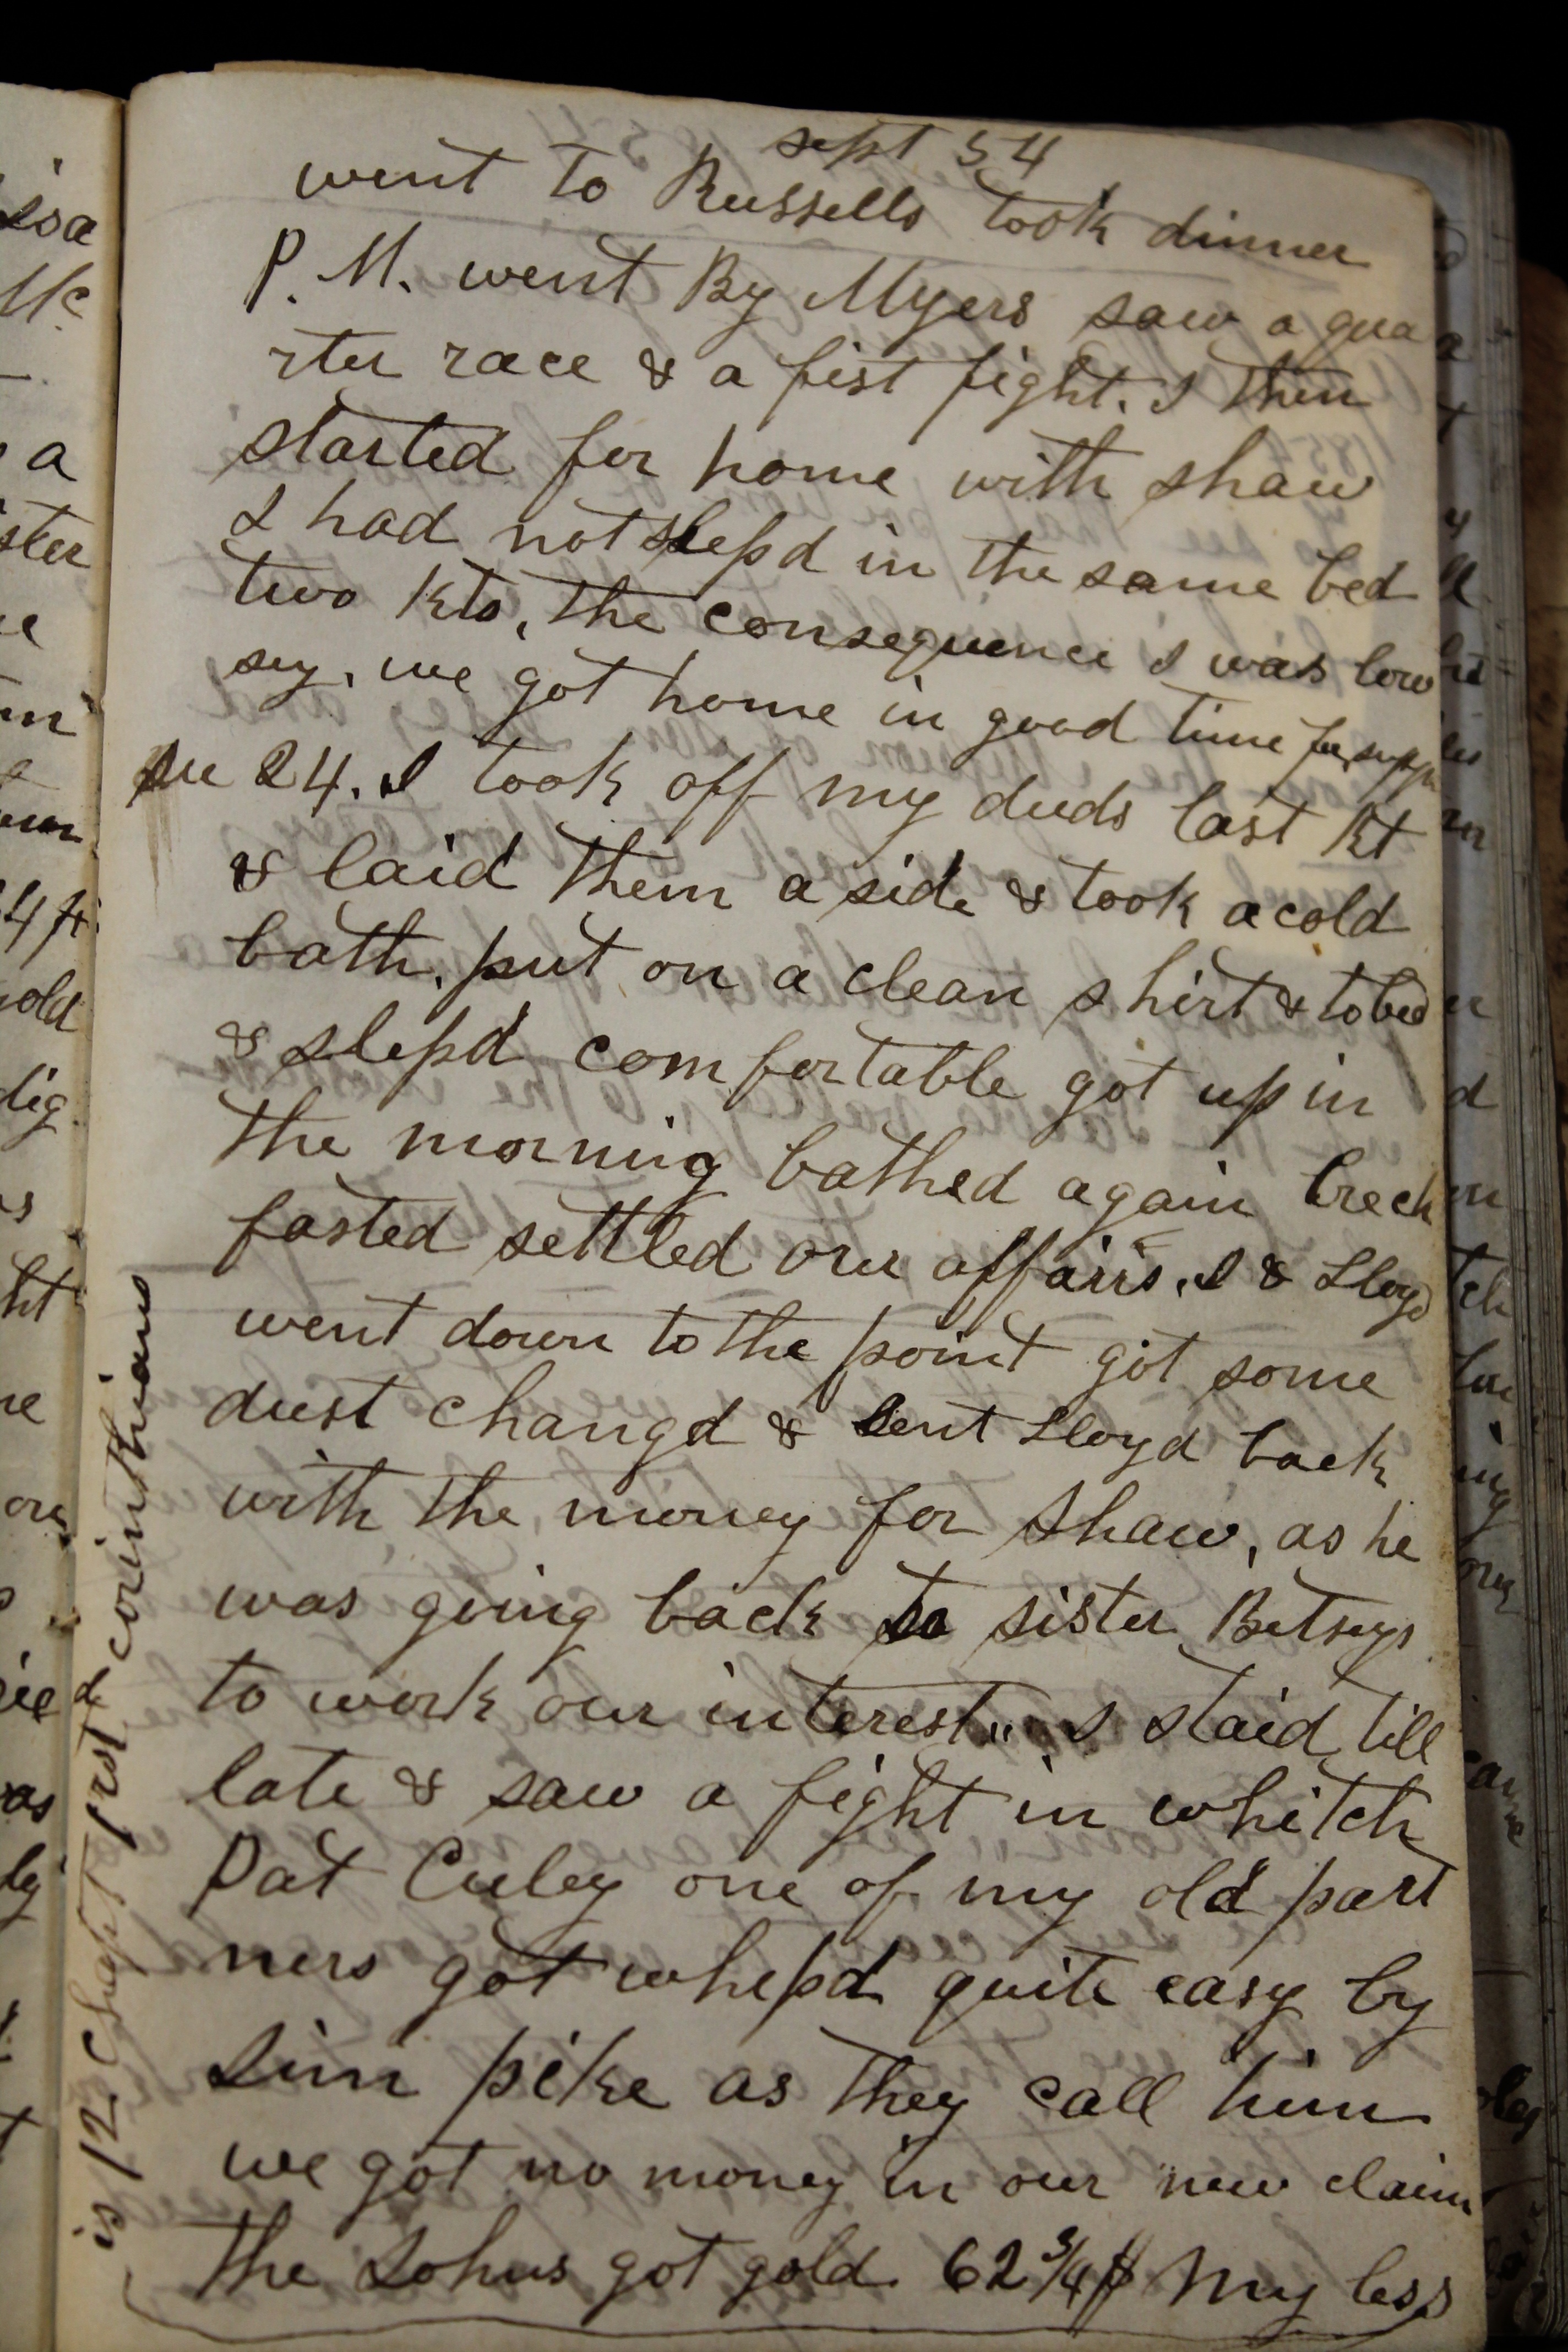 sept 54
went to Russells took dinner
P. M. went By Myers saw a qua
rter race & a fist fight. I then
started for home with shaw
I had not slepd in the same bed
two Kts, the consequence I was low
sey. we got home in good time for
su 24. I took off my duds last Kt
& laid them a side & took a cold
bath. put on a clean shirt & to bed
& slepd comfortable got up in
the morning bathed again breck
fasted settled our affairs. I & Lloyd
went down to the point got some
dust changd & sent Lloyd back
with the money for Shaw, as he
was going back to sister Betseys
to work our interest,, I staid till
late & saw a fight in whitch
Pat Culey one of my old part
ners got whepd quite easy by
Sim pike as they call him
we got no money in our new claim
the Johns got gold. 62 3/4 $ My less
is 12 Chapt 1rst d corinthians